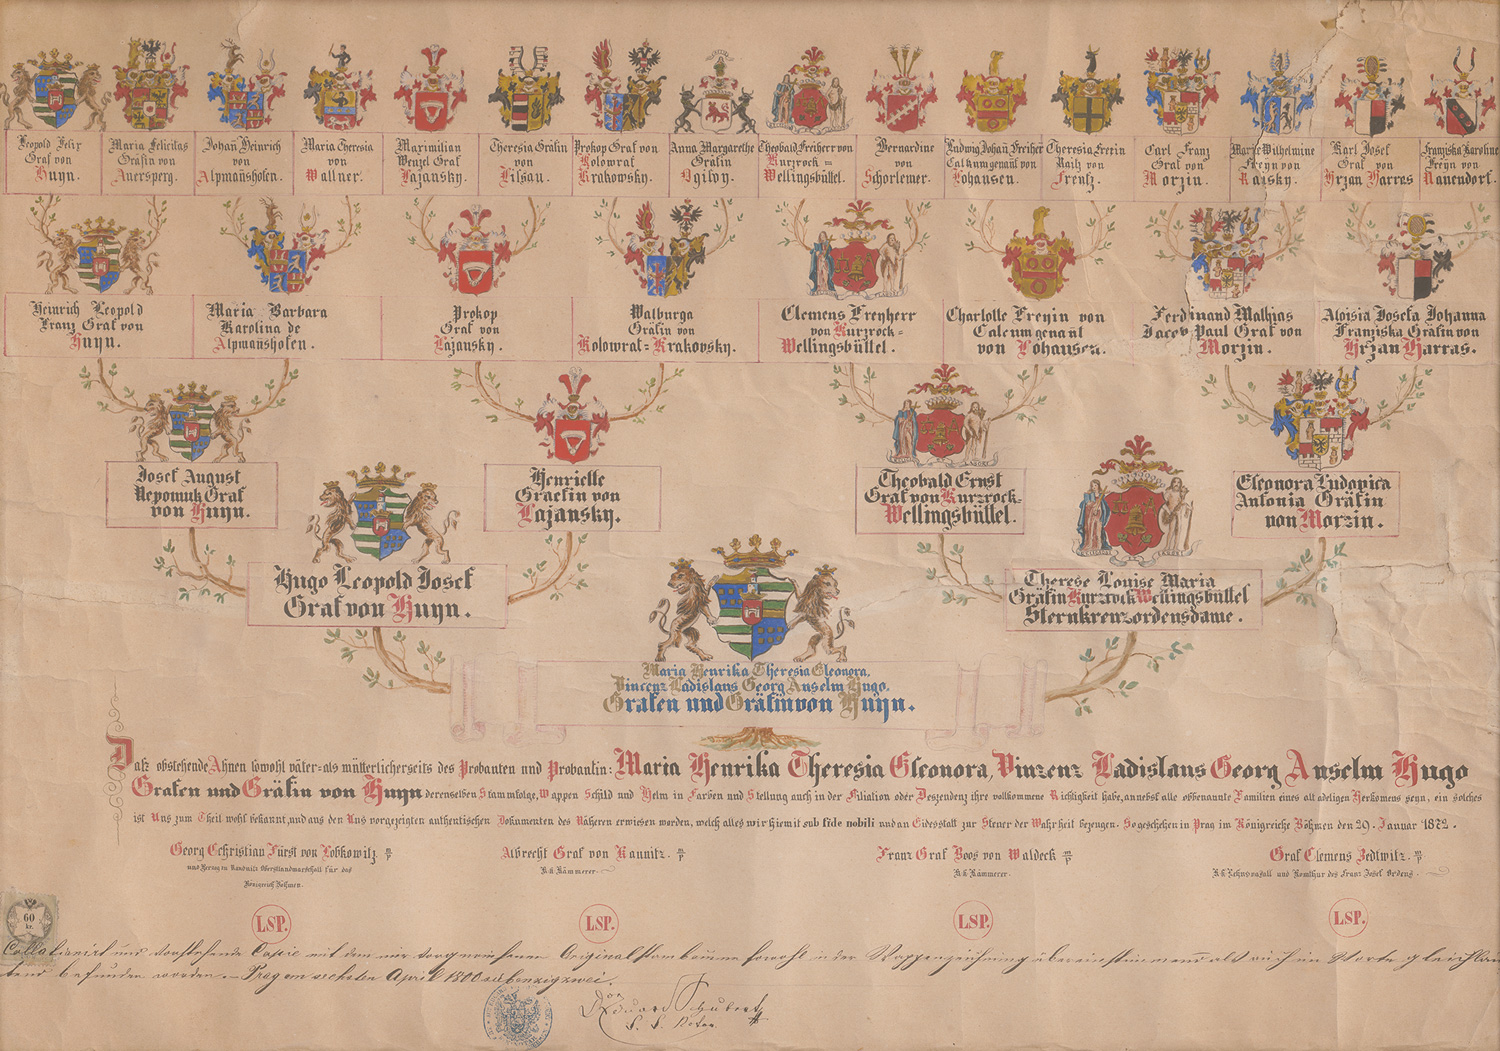 Leopold Felix
Graf von
Huyn.
Maria Felicitas
Gräfin von
Auersperg.
Johañ Heinrich
von
Alpmañshofen.
Maria Theresia
von
Wallner.
Maximilian
Wenzel Graf
Lajansky.
Theresia Gräfin
von
Lilsau.
Prokop Graf von
Kolowrat
Krakowsky.
Anna Margarethe
Gräfin
Ogilvy.
Theobald Freiherr von
Kurzrock=
Wellingsbüttel.
Bernardine
von
Schorlemer.
Ludwig Johañ Freiherr
Calkum genañt von
Lohausen.
Theresia Freyin
Raitz von
Frentz.
Carl Franz
Graf von
Morzin.
Marie Wilhelmine
Freyn von
Raisky.
Karl Josef
Graf von
Hrzan Harras
Franziska Karoline
Freyn von
Nauendorf.
Heinrich Leopold
Franz Graf von
Huyn.
Maria Barbara
Karolina de
Alpmañshofen.
Prokop
Graf von
Lajansky.
Walburga
Gräfin von
Kolowrat=Krakovsky.
Clemens Freyherr
von Kurzrock=
Wellingsbüttel.
Charlotte Freyin von
Calcum genañt
von Lohausen.
Ferdinand Mathias
Jacob Paul Graf von
Morzin.
Aloisia Josefa Johanna
Franziska Gräfin von
Hrzan Harras.
Josef August
Nepomuk Graf
von Huyn.
Henriette
Graefin von
Lajansky.
Theobald Ernst
Graf von Kurzrock-
Wellingsbüttel.
Eleonora Ludovica
Antonia Gräfin
von Morzin.
Hugo Leopold Josef
Graf von Huyn.
Therese Louise Maria
Gräfin Kurzrock Wellingsbüttel
Sternkreuzordensdame.
Maria Henrika Theresia Eleonora,
Vincenz Ladislaus Georg Anselm Hugo,
Grafen und Gräfin von Huyn.
Daß obstehende Ahnen sowohl väter=als mütterlicherseits des Probanten und Probantin: Maria Henrika Theresia Eleonora, Vinzenz Ladislaus Georg Anselm Hugo
Grafen und Gräfin von Huyn derenselben Stammfolge, Wappen Schild und Helm in Farben und Stellung auch in der Filiation oder Deszendenz ihre vollkommene Richtigkeit habe, annebst alle obbenannte Familien eines alt adeligen Herkomens seyn, ein solches
ist Uns zum Theil wohl bekannt, und aus den Uns vorgezeigten authentischen Dokumenten des Näheren erwiesen worden, welch alles wir hiemit sub fide nobili und an Eidesstatt zur Steuer der Wahrheit bezeugen. So geschehen in Prag im Königreiche Böhmen den 29. Januar 1872.
Georg Christian Fürst von Lobkowitz. m/p
und Herzog zu Raudnitz Oberstlandmarschall für das
Königreich Böhmen.
Albrecht Graf von Kaunitz. m/p
K.K. Kämmerer.
Franz Graf Boos von Waldeck m/p
K.K. Kämmerer.
Graf Clemens Zedtwitz. m/p
K.K. Lehnsvasall und Komthur des Franz Josef Ordens.
LSP.
LSP.
LSP.
LSP.
60
kr.
Collationirt und vorstehende Copie mit dem mir vorgewiesenen Originalstambaume sowohl in der Wappenzeichnung übereinstimmend als auch im Worte gleichlau
tend befunden worden. – Prag am sechsten April 1800 siebenzigzwei.
Eduard Schubert